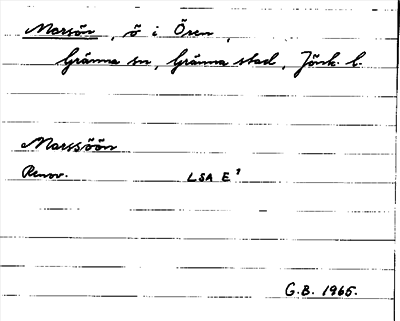 Marsön, ö i Ören,
Gränna sn, Gränna stad, Jönk. l.
Marssöön
Renov. LSA E¹
G.B. 1965.